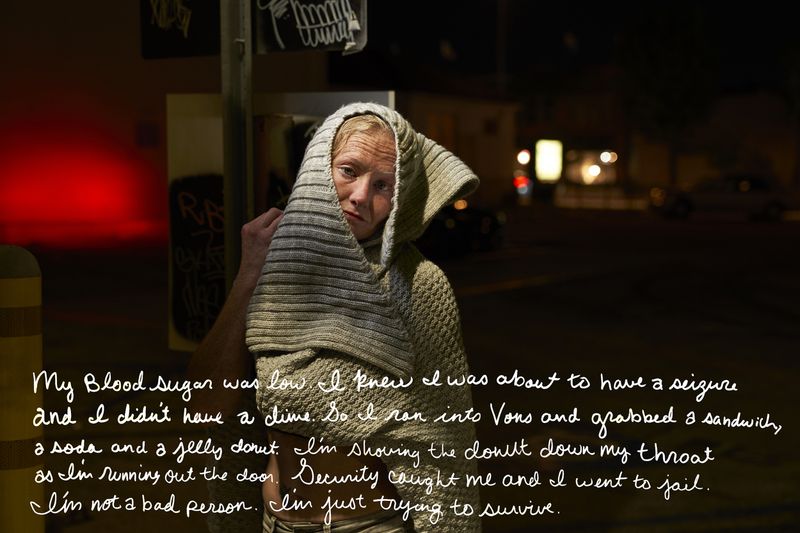 My Blood sugar was low. I knew I was about to have a seizure
and I didn't have a dime. So I ran into Vons and grabbed a sandwich,
a soda and a jelly donut. I'm shoving the donut down my throat
as I'm running out the door. Security caught me and I went to jail.
I'm not a bad person. I'm just trying to survive.